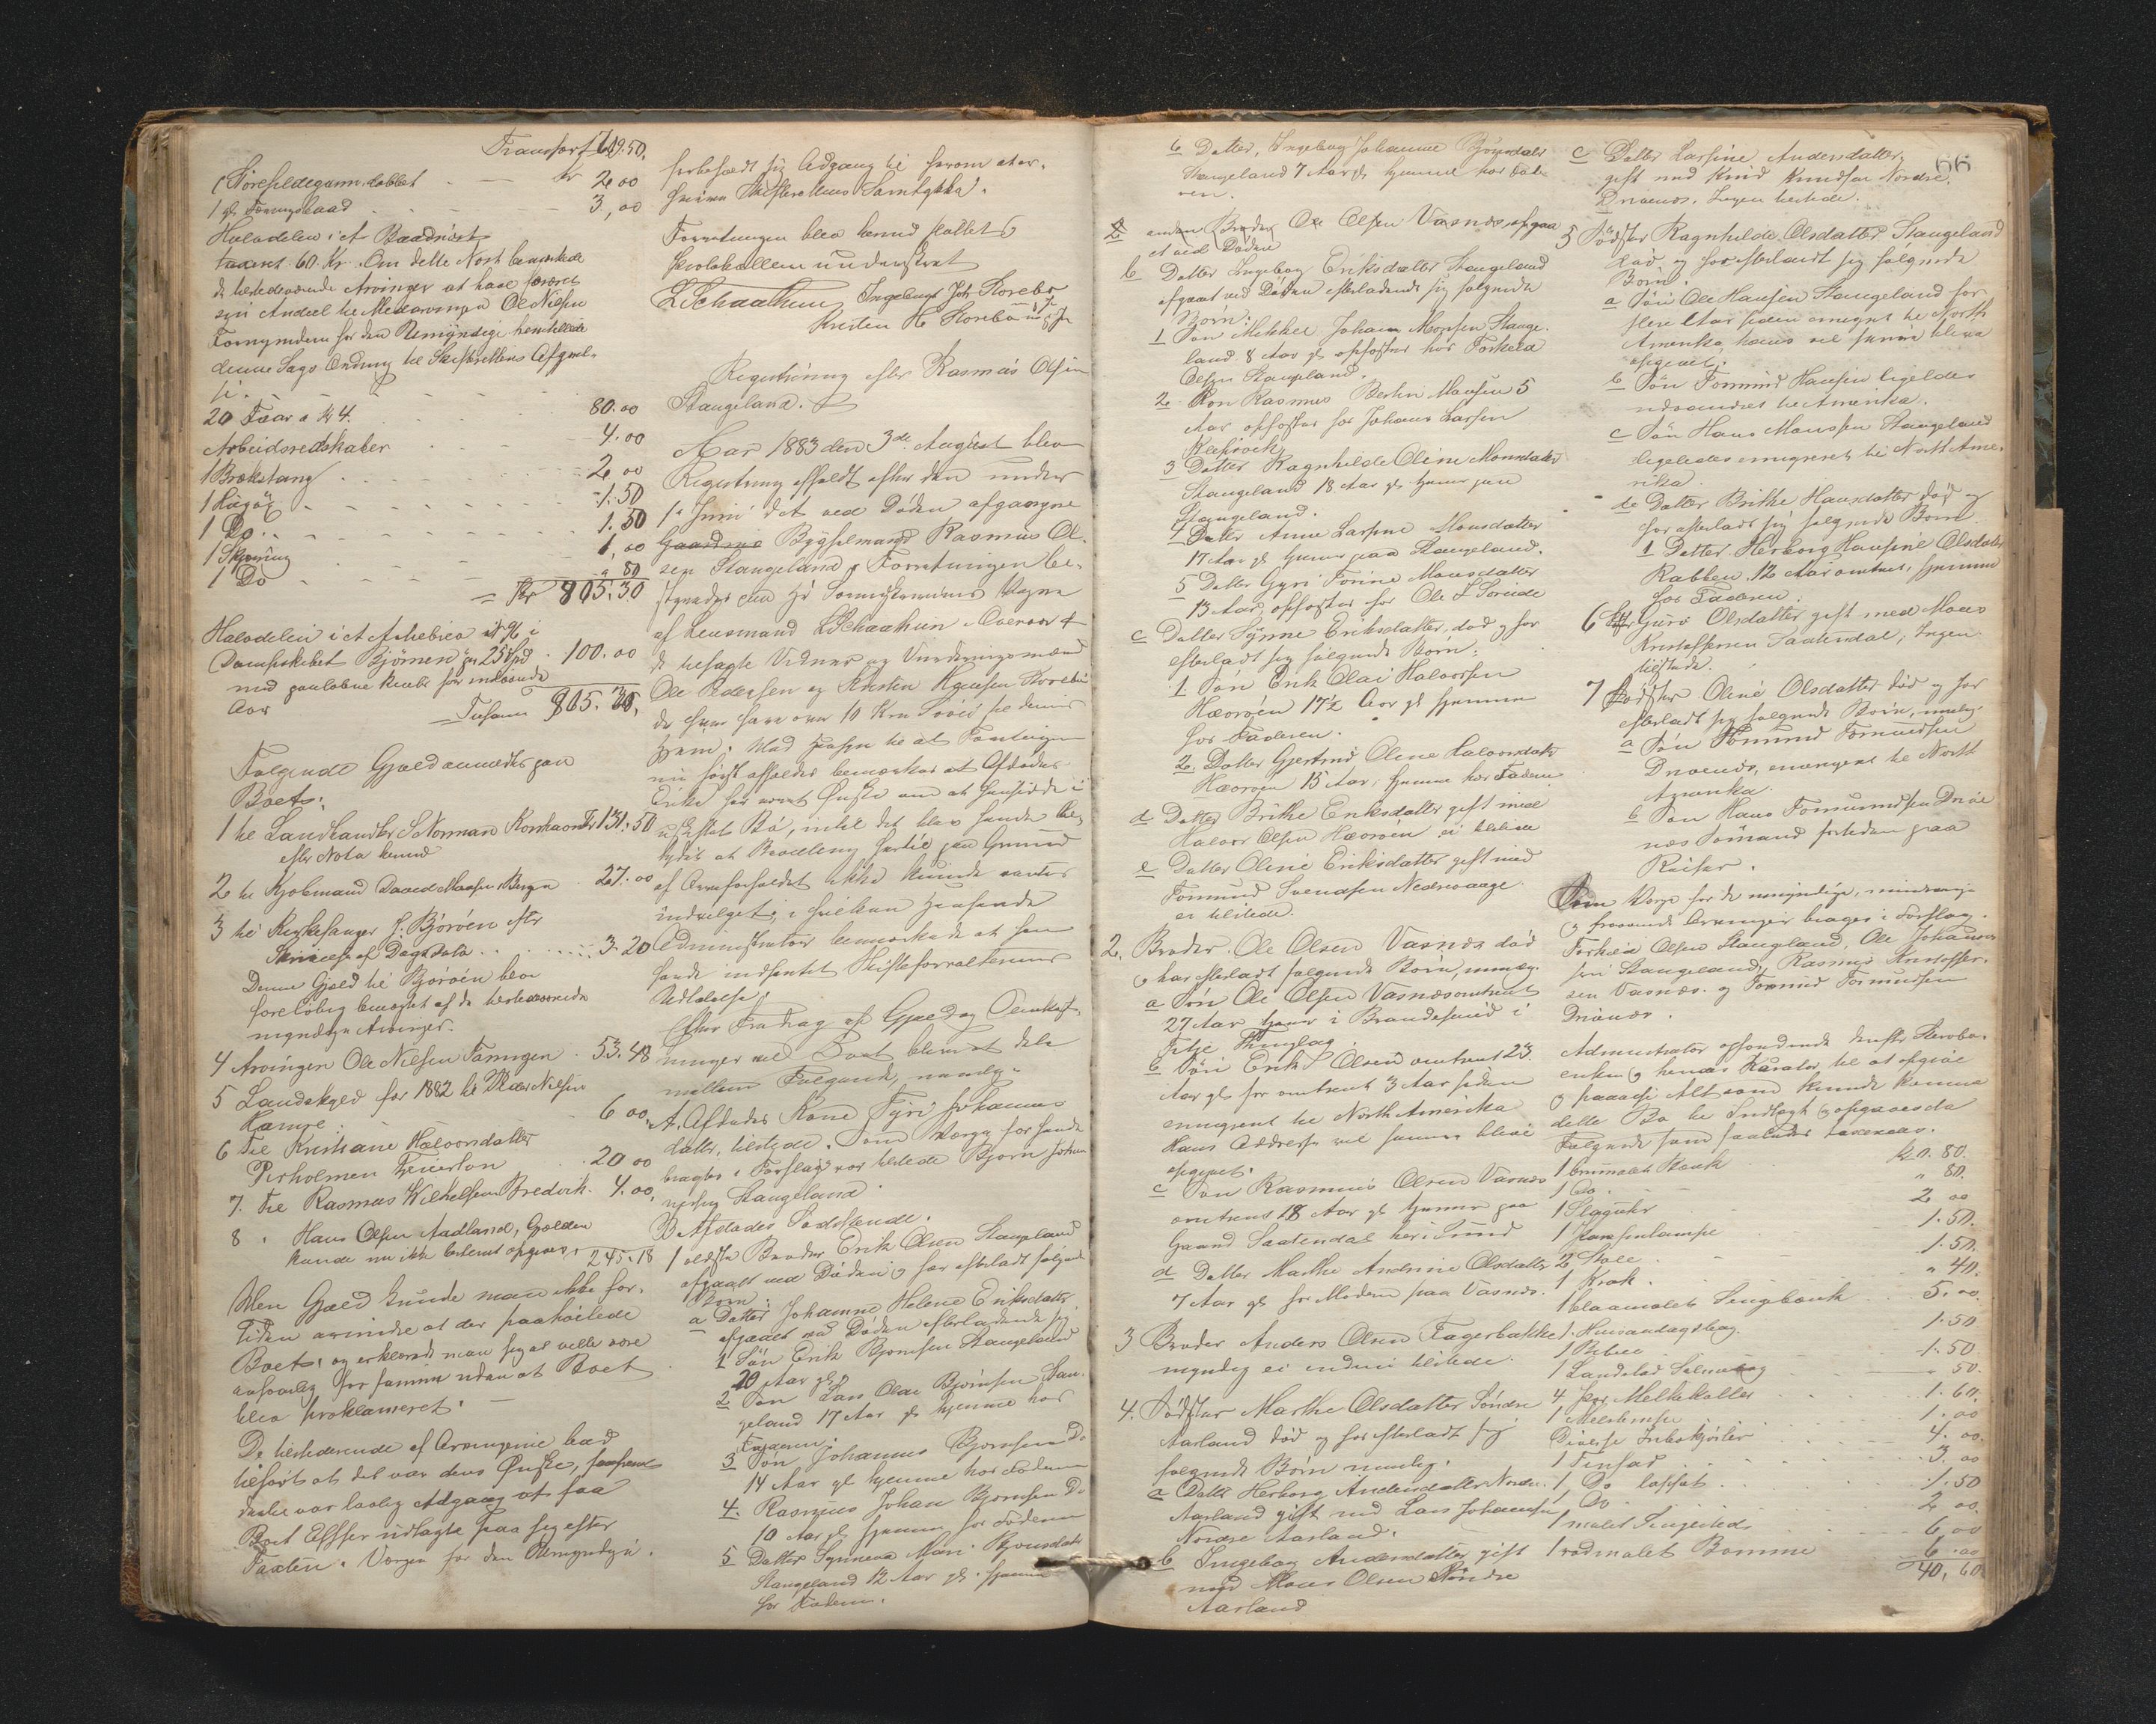 Transport 619.50.
1 Torefildegarn lebbet Kr 2,00
1 gl. Færingsbaad 3,00
Halvdelen i et Baadnøst
taxeret 60 Kr. Om dette Nøst bemærkede
de tilstedeværende Arvinger at have
sin Andeel til Medarvingen Ole Nilsen
Formynderen for den Umyndige henstillede
denne Sags Ordning til Skifterettens Afgjørel-
se.
20 Faar a Kr 4. 80.00
Arbeidsredskaber 4.00
1 Brækstang 2 00
1 Haugøx 1.50
1 Do 1.50
1 1,00
1 Do " 80
= Kr 805.30
Halvdelen i et Actiebrev No 96 i
Dampskibet Bjørnen paa 25 Spd 100.00
med paaløbne Renter for indeværende
Aar
Tilsammen 805.30,
Følgende Gjæld anmeldes paa
Boet:
1 til Landhandler S. Norman Korshavn Kr 131.50
efter Nota
2 til Kjøbmand David Monsen Bergen 27.00
3 til Kirkesanger J. Bjørøen efter
Skrivelse af Dags Dato 3.20
Denne Gjæld til Bjørøen blev
foreløbig benægtet af de tilstedeværende
myndige Arvinger.
4 Arvingen Ole Nilsen Tanngen 53.48
5 Landskyld for 1882 til Peder Nilsen
6 00
6 Til Kristiane Halvorsdatter
20 00
7. Til Rasmus Vilhelmsen Bredvik 4.00,
8 " Hans Olsen Aadland, Gjælden
kunde nu ikke bestemt opgives. 245.18
Mere Gjæld kunde man ikke for-
Tiden erindre at der paahvilede
Boet, og erklærede man sig at ville være
ansvarlig for samme uden at Boet
blev proklameret.
De tilstedeværende af Arvingerne bad
tilført at det var deres Ønske, saafremt
dertil var lovlig Adgang at faa
Boet Effecter udlagte paa sig efter
Taxten. Værgen for den Umyndige
forbeholdt sig Adgang til herom at er-
hverve Skifterettens Samtykke.
Forretningen blev hermed sluttet og
Protokollen underskrevet
L Schaathun Ingebrigt Joh. Storebø
Kristen H. Storebø
Registrering efter Rasmus Olsen
Stangeland.
Aar 1883 den 3de August blev
Registrering afholdt efter den under
1st Juni d.A. ved Døden afgangne
Gaardm Bygselmand Rasmus Ol-
sen Stangeland. Forretningen be-
styredes efter Hr Sorenskriverens Ordre
af Lensmand L Schaathun i Overvær af
de tilsagte Vidner og Vurderingsmænd
Ole Pedersen og Kristen Hansen Storebø
de hver have over 10 Km Søvei til denne
Forr. Med Hensyn til at Forretningen
nu først afholdes bemærkes at Afdødes
Enke har været Ønske om at hensidde i
uskiftet Bo, indtil det blev hende be-
tydet at Bevilling hertil paa Grund
af Arveforholdet ikke kunde ventes
indvilget, i hvilken Henseende
Administrator bemærkede at have
havde indhentet Skifteforvalterens
Udtalelse.
Efter Fradrag af Gjæld og Omkost-
ninger ved Boet bliver at dele
mellem Følgende, nemlig.
A. Afdødes Kone Gyri Johannes-
datter, tilstede. Som Værge for hende
bragtes i Forslag vor tilstede Bjørn Johan-
nesen Stangeland.
B. Afdødes Sødskende.
1 ældste Broder Erik Olsen Stangeland
afgaaet ved Døden og har efterladt følgende
Børn:
a Datter Johanne Helene Eriksdatter
afgaaet ved Døden efterladende sig
1 Søn Erik Bjørnsen Stangeland
20 Aar gl.
2 Søn Lars Olai Bjørnsen Stan-
geland 17 Aar gl. hjemme hos
Faderen.
3 Søn Johannes Bjørnsen Do
14 Aar gl. hjemme hos Faderen
4. Rasmus Johan Bjørnsen Do
10 Aar gl. hjemme hos Faderen
5 Datter Synneva Mari Bjørnsdatter
Stangeland 12 Aar gl. hjemme
hos Faderen.
6 Datter, Ingeborg Johanne Bjørnsdatter
Stangeland 7 Aar gl. hjemme hos Fade-
ren.
2 anden Broder Ole Olsen Vasnæs afgaa
et ved Døden
b Datter Ingeborg Eriksdatter Stangeland
afgaaet ved Døden efterladende sig følgende
Børn:
1 Søn Mikkel Johan Monsen Stange-
land 8 Aar gl. opfostres hos Torkild
Olsen Stangeland.
2. Søn Rasmus Bertin Monsen 5
Aar opfostres hos Johans Larsen
Klepsvik
3 Datter Ragnhilde Oline Monsdatter
Stangeland 18 Aar gl. hjemme paa
Stangeland.
4 Datter Anne Larsine Monsdatter
17 Aar gl. hjemme paa Stangeland.
5 Datter Gyri Torine Monsdatter
13 Aar, opfostres hos Ole L Toreide
c Datter Synne Eriksdatter, død og har
efterladt sig følgende Børn:
1 Søn Erik Olai Halvorsen
Hævrøen 17½ Aar gl. hjemme
hos Faderen.
2. Datter Gjertrud Oline Halvorsdatter
Hævrøen 15 Aar, hjemme hos Faderen
d Datter Brithe Eriksdatter gift med
Halvor Olsen Hævrøen ei tilstede
e Datter Oline Eriksdatter gift med
Tormund Svendsen Nedrevaage
ei tilstede.
2. Broder Ole Olsen Vasnæs død
og har efterladt følgende Børn, nemlig.
a Søn Ole Olsen Vasnæs omtrent
27 Aar hjemme i Brandesund i
Fitje Thinglag
b Søn Erik Olsen omtrent 23
Aar gl. for omtrent 3 Aar siden
emigreret til North Amerika
Hans Addresse vil senere blive
opgivet.
c Søn Rasmus Olsen Vasnæs
omtrent 18 Aar gl. hjemme paa
Gaard Sadendal her i Sund
d Datter Marthe Andrine Olsdatter
7 Aar gl. hos Moderen paa Vasnæs.
3 Broder Anders Olsen Fagerbakke
myndig ei endnu tilstede.
4. Sødster Marthe Olsdatter Søndre
Aarland død og har efterladt sig
følgende Børn nemlig.
a Datter Herborg Andersdatter Nordre
Aarland gift med Lars Johannesen
Nordre Aarland.
b Ingeborg Andersdatter gift
med Mons Olsen Søndre
Aarland
66
c Datter Larsine Andersdatter
gift med Knud Knudsen Nordre
Drivenes. Ingen tilstede.
5 Sødster Ragnhilde Olsdatter Stangeland
død og har efterladt sig følgende
Børn:
a Søn Ole Hansen Stangeland for
flere Aar siden emigreret til North
Amerika, hans vil senere blive
opgivet.
b Søn Tormund Hansen ligeledes
udvandret til Amerika.
c Søn Hans Hanssen Stangeland
ligeledes emigreret til North Ame-
rika.
d Datter Brithe Hansdatter død og
har efterladt sig følgende Børn
1 Datter Herborg Hansine Olsdatter
Rabben 12 Aar omtrent, hjemme
hos Faderen.
6 Guro Olsdatter gift med Mons
Kristoffersen Sadendal, Ingen
tilstede.
7 Sødster Oline Olsdatter død og har
efterladt sig følgende Børn, nemlig
a Søn Tormund Tormundsen
Drivenes, emigreret til North
Amerika.
b Søn Hans Tormundsen Drive
nes Sømand fortiden paa
Reiser.
Som Værge for de umyndige, mindreaarige
og fraværende Arvinger bragtes i Forslag.
Torkild Olsen Stangeland, Ole Johannes
sen Stangeland, Rasmus Kristoffer-
sen Vasnæs og Tormund Tormundsen
Drivenes.
Administrator opfordrede derefter Stervbo-
enken og hendes Kurator til at opgive
og paavise Alt som kunde komme
dette Bo til Indtægt og opgaves da
Følgende som saaledes taxeredes.
1 brunmalet Bænk Kr 0.80.
1 Do. " 80.
1 Slaguhr 2 00
1 Parafinlampe 1.50.
2 Stole 1.50.
1 Krak. " 40.
1 blaamalet Sengebænk 5.00.
1 Huusandagtsbog. 1.50
1 Bibel 1.50
1 Landstad Salmebog " 50.
4 par Melkekoller 1.60.
1 1.00
Diverse 4.00.
1 Tinfad 3.00
1 Do lappet 1.50
1 Do 2 00
1 malet Sengested 6,00
1 rødmalet Bomme 6.00
40,60